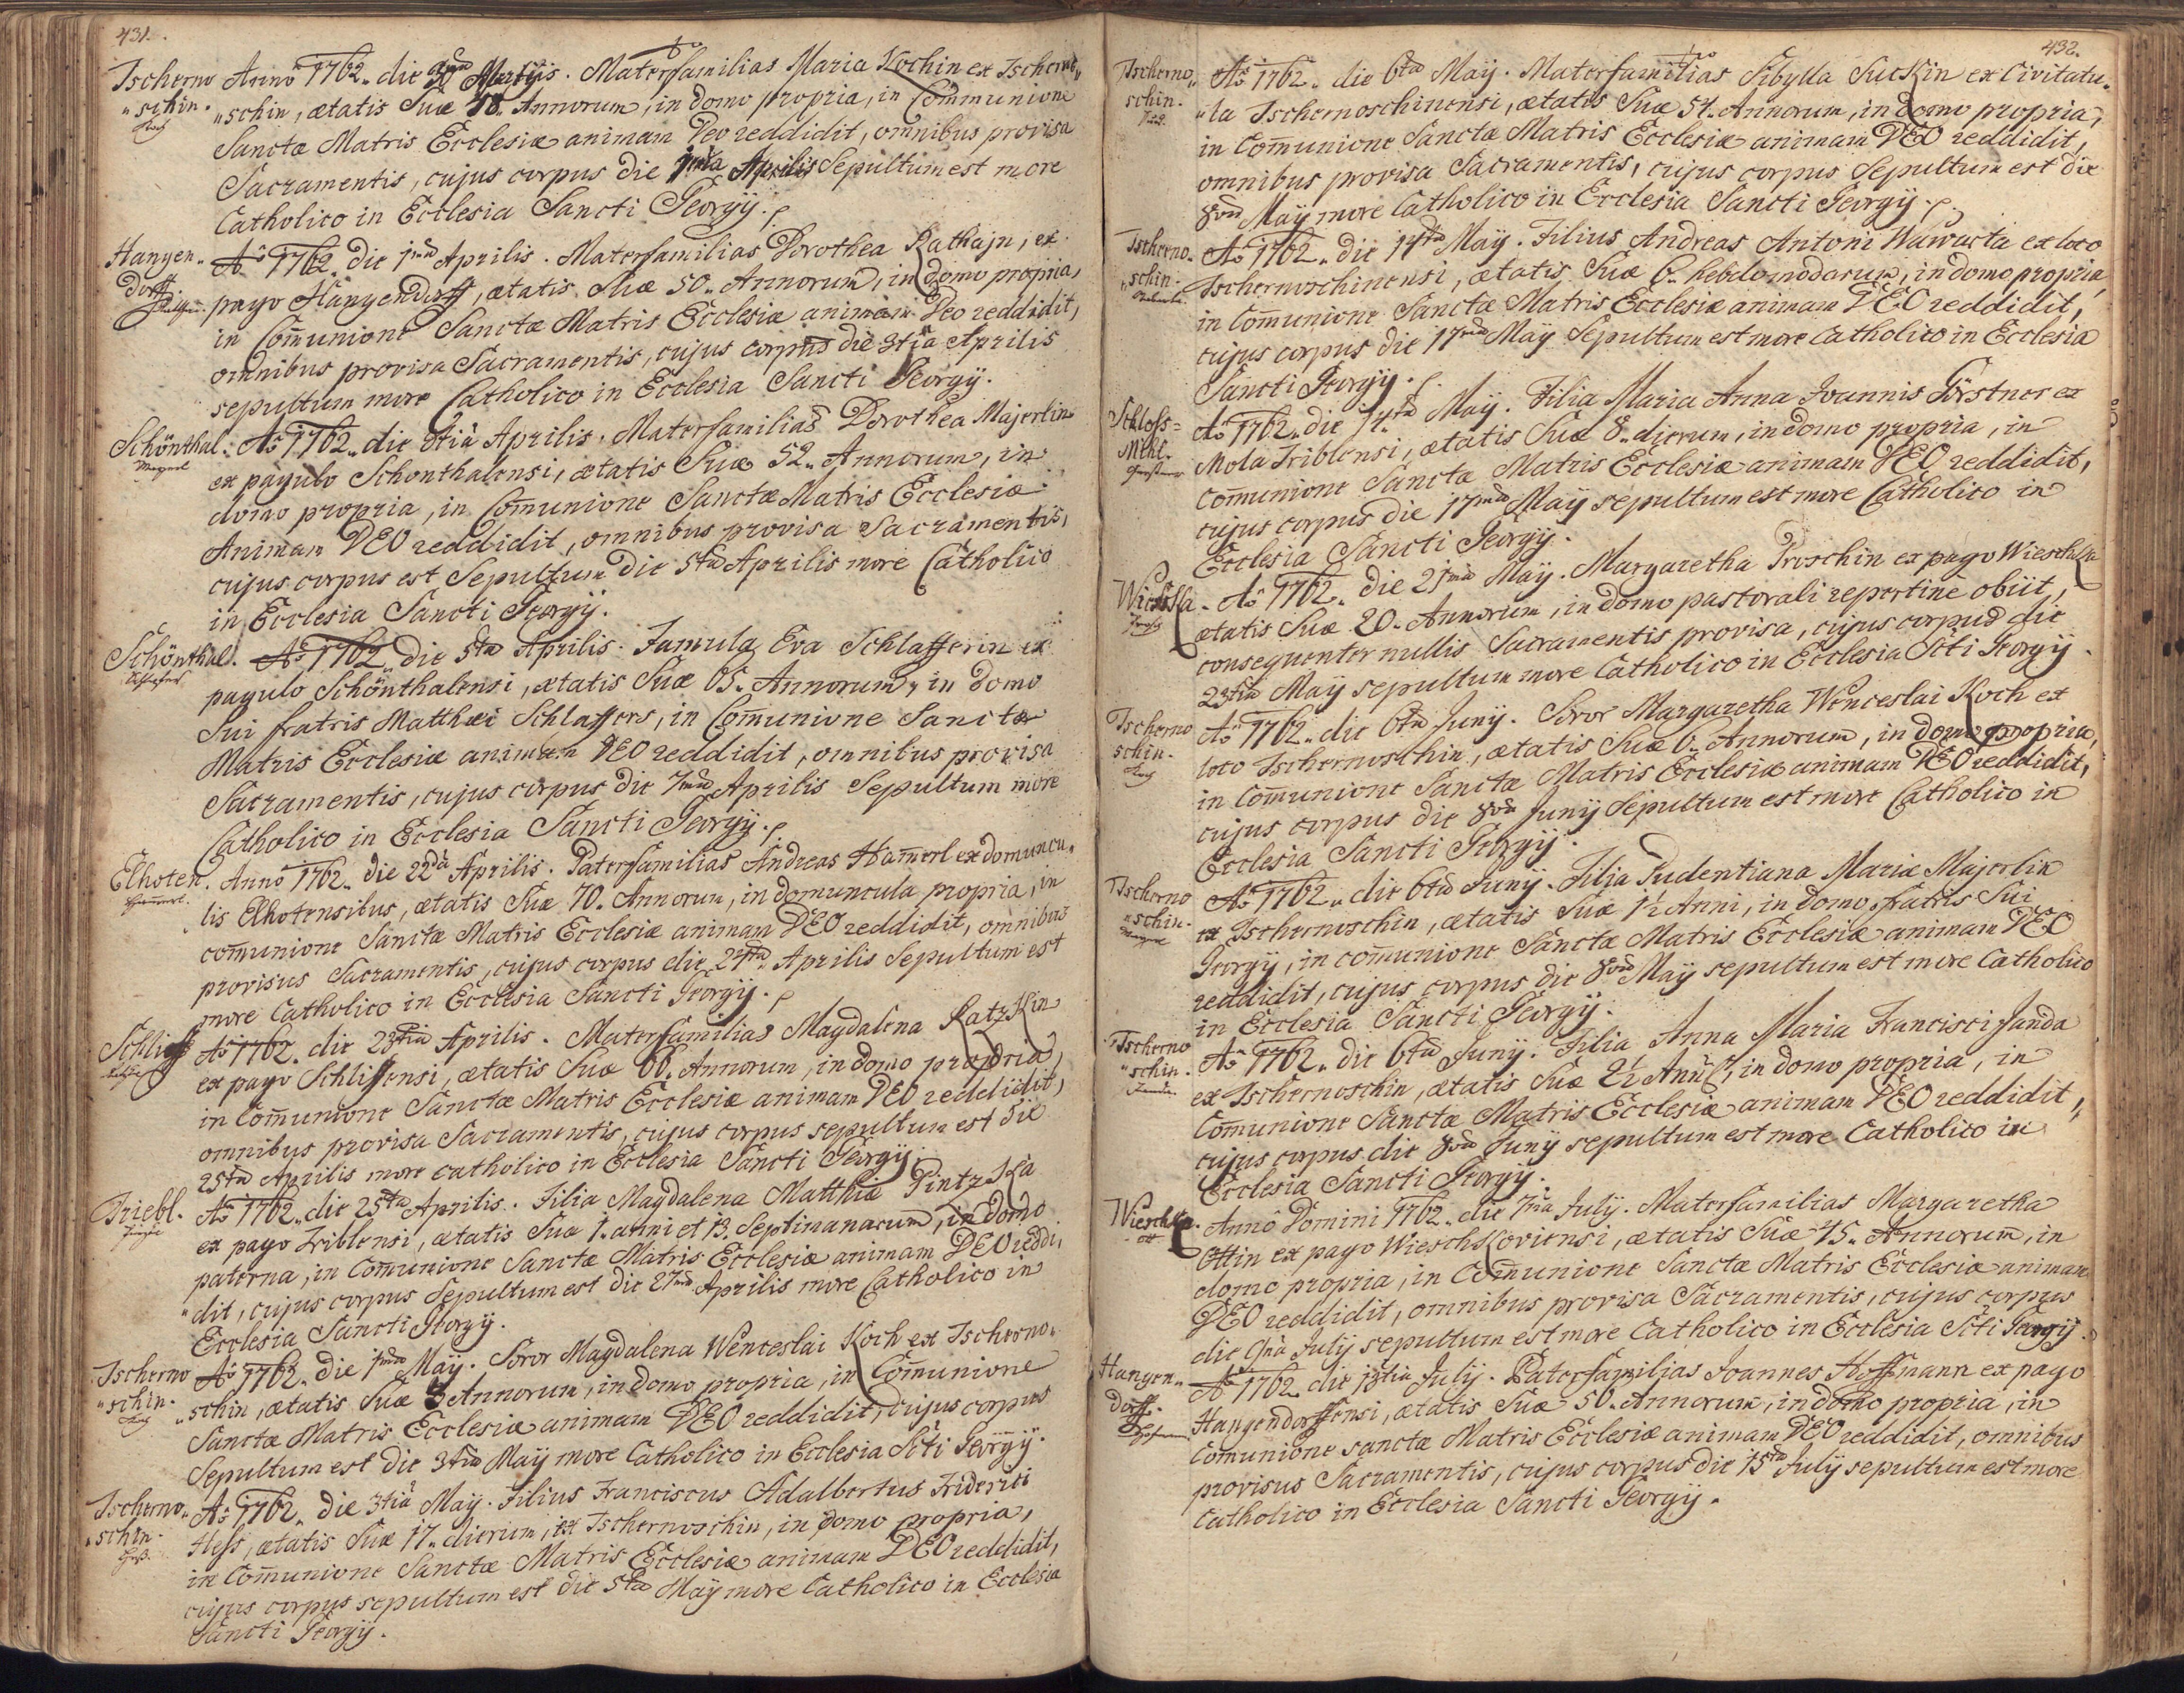 431.
Tscherno Anno 1762. die 30 Martÿis. Materfamilias Maria Kochin ex Tscherno„
„schin. „schin, ætatis Suæ 58. Annorum, in domo propria, in Communione
Koch Sanctæ Matris Ecclesiæ animam Deo reddidit, omnibus provisa
Sacramentis, cujus corpus die 1ma Aprilis Sepultum est more
Catholico in Ecclesia Sancti Georgÿ.
Hangen„ Aô 1762. die 1ma Aprilis. Materfamilias Dorothea Rathajn, ex
dorff pago Hangendorff, ætatis Suæ 50. Annorum, in domo propria,
in Com̄unione Sanctæ Matris Ecclesiæ animam Deo reddidit,
omnibus provisa Sacramentis, cujus corpus die 3tia Aprilis
sepultum more Catholico in Ecclesia Sancti Georgÿ.
Schönthal. Aô 1762. die 3tia Aprilis. Materfamilias Dorothea Majerlin
Mayerl ex pagulo Schonthalensi, ætatis Suæ 52. Annorum, in
domo propria, in Com̄unione Sanctæ Matris Ecclesiæ
Animam DEO reddidit, omnibus provisa Sacramentis,
cujus corpus est Sepultum die 5ta Aprilis more Catholico
in Ecclesia Sancti Georgÿ.
Schönthal. Aô 1762. die 5ta Aprilis. Famula Eva Schlafferin ex
Schlaffer pagulo Schönthalensi, ætatis Suæ 65. Annorum, in domo
Sui fratris Matthæi Schlaffers, in Com̄unione Sanctæ
Matris Ecclesiæ animam DEO reddidit, omnibus provisa
Sacramentis, cujus corpus die 7ma Aprilis Sepultum more
Catholico in Ecclesia Sancti Georgÿ.
Elhoten. Anno 1762. die 22da Aprilis. Paterfamilias Andreas Ham̄erl ex domuncu„
Ham̄erl. lis Elhotensibus, ætatis Suæ 70. Annorum, in domuncula propria, in
com̄unione Sanctæ Matris Ecclesiæ animam DEO reddidit, omnibus
provisus Sacramentis, cujus corpus die 24ta Aprilis Sepultum est
more Catholico in Ecclesia Sancti Georgÿ.
Schliff Aô 1762. die 23tia Aprilis. Materfamilias Magdalena Ratzkin
ex pago Schliffensi, ætatis Suæ 66. Annorum, in domo propria,
in Com̄unione Sanctæ Matris Ecclesiæ animam DEO reddidit,
omnibus provisa Sacramentis, cujus corpus sepultum est die
25ta Aprilis more catholico in Ecclesia Sancti Georgÿ.
Triebl. Aô 1762. die 25ta Aprilis. Filia Magdalena Matthiæ Pintzka
ex pago Triblensi, ætatis Suæ 1. anni et 13. Septimanarum, in domo
paterna, in Com̄unione Sanctæ Matris Ecclesiæ animam DEO reddi„
„dit, cujus corpus Sepultum est die 27ma Aprilis more Catholico in
Ecclesia Sancti Georgÿ.
Tscherno Aô 1762. die 1ma Maÿ. Soror Magdalena Wenceslai Koch ex Tscherno„
„schin. „schin, ætatis Suæ Annorum, in domo propria, in Com̄unione
Koch Sanctæ Matris Ecclesiæ animam DEO reddidit, cujus corpus
Sepultum est die 3tia Maÿ more Catholico in Ecclesia Scti Georgÿ.
Tscherno„ Aô 1762. die 3tia Maÿ. Filius Franciscus Adalbertus Friderici
„schin. Heß, ætatis Suæ 17. dierum, ex Tschernoschin, in domo propria,
Heß. in Com̄unione Sanctæ Matris Ecclesiæ animam DEO reddidit,
cujus corpus sepultum est die 5ta Maÿ more Catholico in Ecclesia
Sancti Georgÿ.
432.
Tscherno„ Aô 1762. die 6ta Maÿ. Materfamilias Sibylla Suckin ex Civitatu„
schin. „la Tschernoschinensi, ætatis Suæ 54. Annorum, in domo propria,
in Com̄unione Sanctæ Matris Ecclesiæ animam DEO reddidit,
omnibus provisa Sacramentis, cujus corpus Sepultum est die
8va Maÿ more Catholico in Ecclesia Sancti Georgÿ.
Tscherno„ Aô 1762. die 14ta Maÿ. Filius Andreas Antoni Wawacta ex loco
„schin. Tschernoschinensi, ætatis Suæ 6. hebdomodarum, in domo propria,
in Com̄unione Sanctæ Matris Ecclesiæ animam DEO reddidit,
cujus corpus die 17ma Maÿ Sepultum est more Catholico in Ecclesia
Sancti Georgÿ.
Schloss= Aô 1762. die 14ta Maÿ. Filia Maria Anna Joannis Förstner ex
Mühl. Mola Triblensi, ætatis Suæ 8. dierum, in domo propria, in
com̄unione Sanctæ Matris Ecclesiæ animam DEO reddidit,
cujus corpus die 17ma Maÿ sepultum est more Catholico in
Ecclesia Sancti Georgÿ.
Wieschka. Aô 1762. die 21ma Maÿ. Margaretha Proschin ex pago Wieschka
ætatis Suæ 20. Annorum, in domo pastorali repertine obiit,
consequenter nullis Sacramentis provisa, cujus corpus die
23tia Maÿ sepultum more Catholico in Ecclesia Scti Georgÿ.
Tscherno Aô 1762. die 6ta Junÿ. Soror Margaretha Wenceslai Koch ex
schin. loco Tschernoschin, ætatis Suæ 6. Annorum, in domo propria,
Koch in Com̄unione Sanctæ Matris Ecclesiæ animam DEO reddidit,
cujus corpus die 8va Junÿ Sepultum est more Catholico in
Ecclesia Sancti Georgÿ.
Tscherno Aô 1762. die 6ta Junÿ. Filia Pudentiana Maria Majerlin
„schin. ex Tschernoschin, ætatis Suæ 1½ Anni, in domo fratris Sui
Mayerl Georgÿ, in com̄unione Sanctæ Matris Ecclesiæ animam DEO
reddidit, cujus corpus die 8va Maÿ sepultum est more Catholico
in Ecclesia Sancti Georgÿ.
Tscherno Aô 1762. die 6ta Junÿ. Filia Anna Maria Francisci Janda
„schin. ex Tschernoschin, ætatis Suæ 2½ Anni, in domo propria, in
Janda. Com̄unione Sanctæ Matris Ecclesiæ animam DEO reddidit,
cujus corpus die 8va Junÿ sepultum est more Catholico in
Ecclesia Sancti Georgÿ.
Wieschka. Anno Domini 1762. die 7ma Julÿ. Materfamilias Margaretha
Ott Ottin ex pago Wieschkoviensi, ætatis Suæ 45. Annorum̄, in
domo propria, in Com̄unione Sanctæ Matris Ecclesiæ animam
DEO reddidit, omnibus provisa Sacramentis, cujus corpus
die 9na Julÿ sepultum est more Catholico in Ecclesia Scti Georgÿ.
Hangen„ Aô 1762. die 13tia Julÿ. Paterfamilias Joannes Hoffmann ex pago
dorff. Hangendorffensi, ætatis Suæ 50. Annorum, in domo propria, in
Com̄unione sanctæ Matris Ecclesiæ animam DEO reddidit, omnibus
provisus Sacramentis, cujus corpus die 15ta Julÿ sepultum est more
Catholico in Ecclesia Sancti Georgÿ.